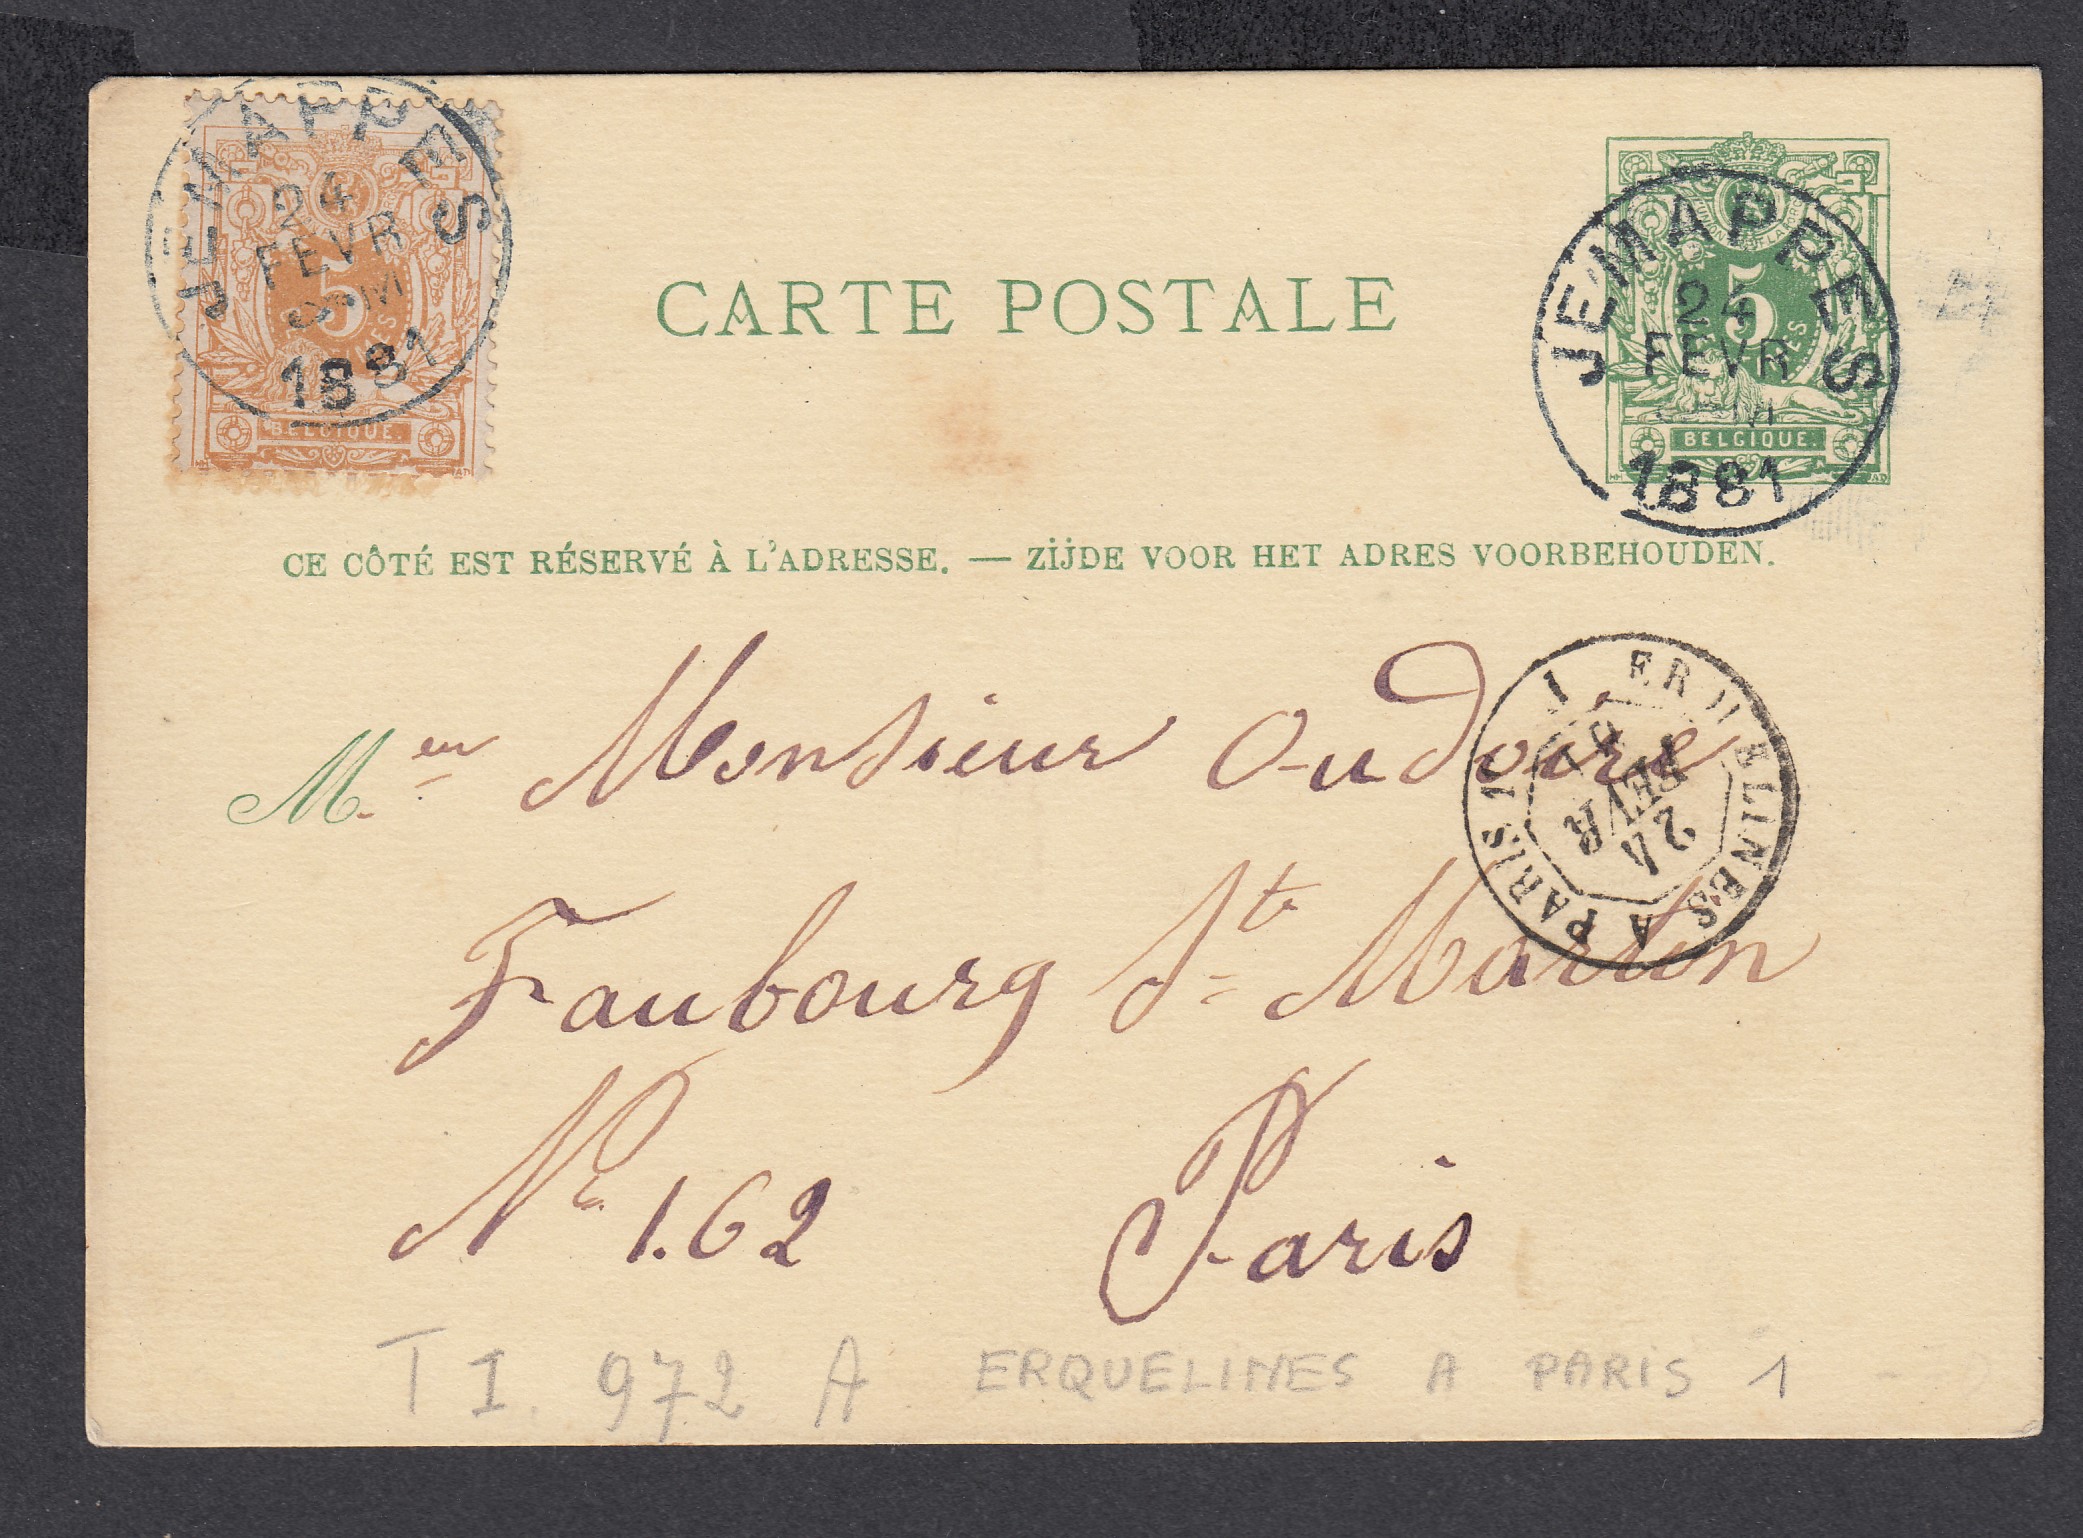 JEMAPPES
24
FEVR
1881
5
BELGIQUE.
JEMAPPES
24
FEVR
1881
5
BELGIQUE.
CARTE POSTALE
CE CÔTÉ EST RÉSERVÉ À L'ADRESSE. — ZIJDE VOOR HET ADRES VOORBEHOUDEN.
M. Monsieur Oudoire
ERQUELINES A PARIS 1
24
FEVR
81
Faubourg St Martin
No 162 Paris
T I. 972 A ERQUELINES A PARIS 1